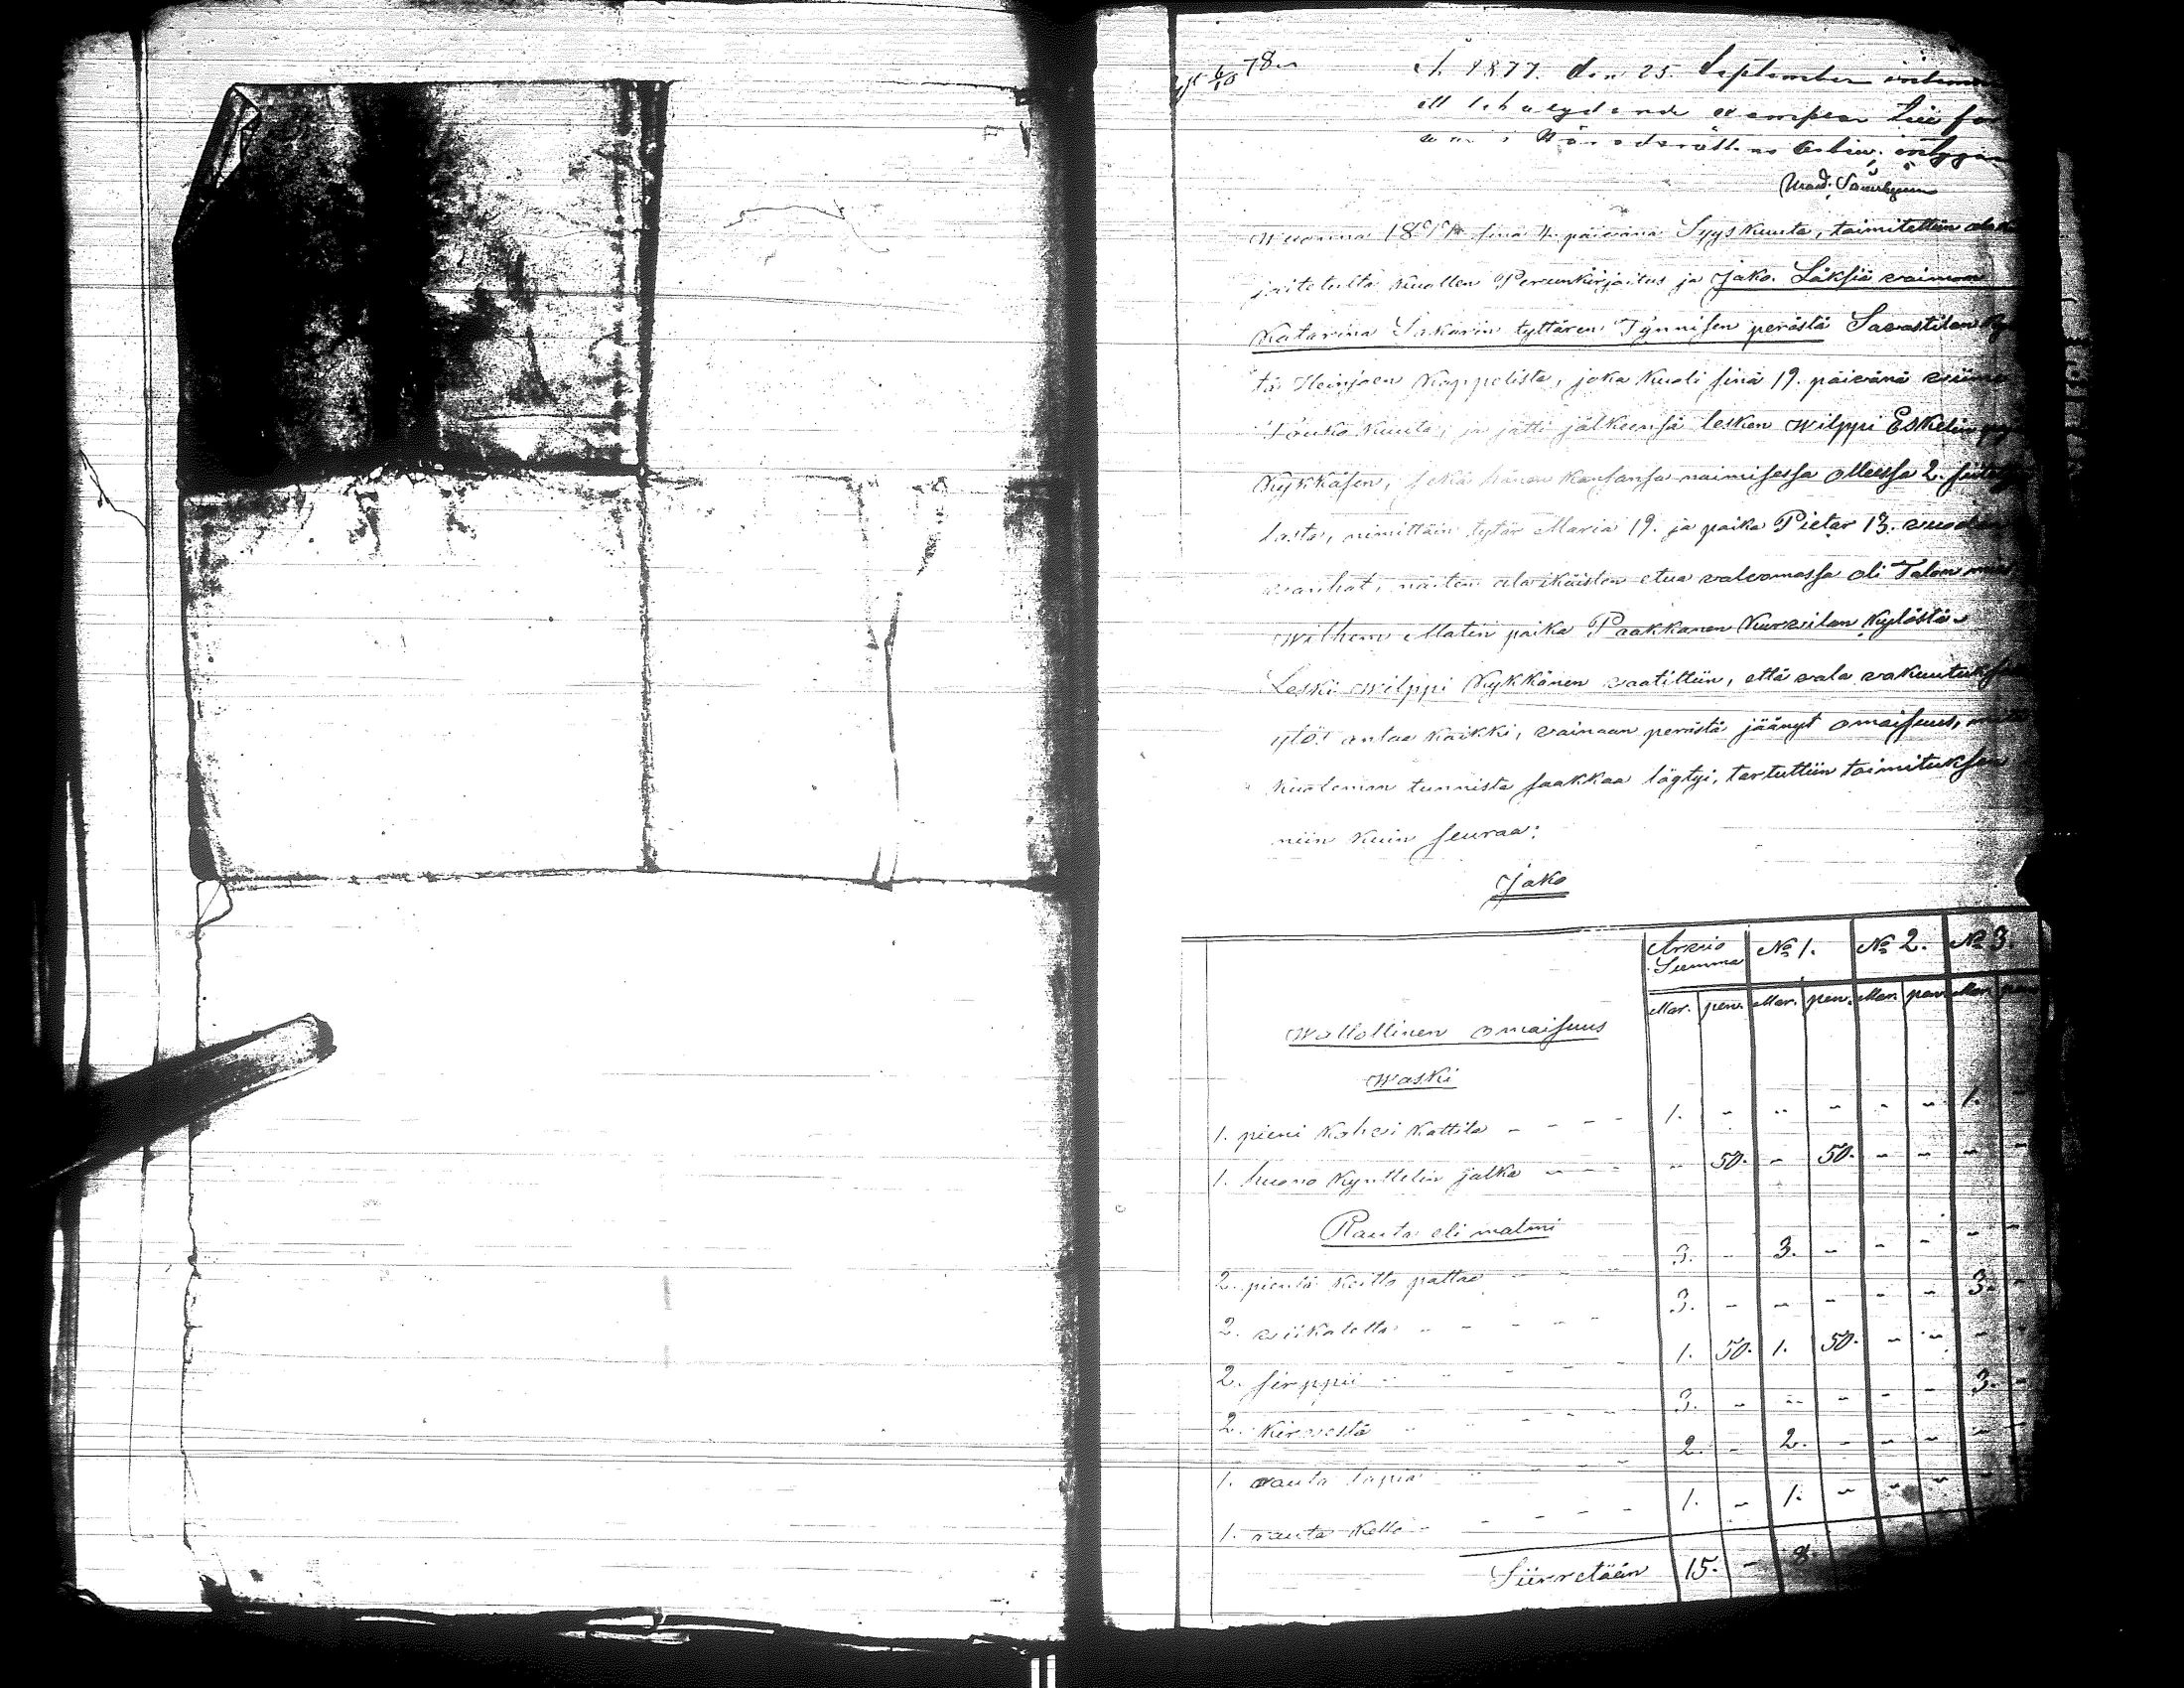 År 1877. den 25. September
ett lika lydande exemplar
Häradsrättens Arkiv.
Wuonna 1877 sinä 4. päivänä Syyskuuta, toimitettiin
kuollen Perunkirjoitus ja Jako. Läksiä vaimon
Katarina Sakarin tyttären Tynnisen perästä Savastilan
tä Heinjoen Kappelista, joka kuoli sinä 19. päivänä viime
Touko kuuta, ja jätti jälkeensä lesken Wilppi Eskelin
Kykkäsen, sekä hänen kansansa naimisessa olleessa 2.
lasta, nimittäin tytär Maria 19. ja poika Pietar 13. vuoden
vanhat, näiten alaikäisten etua valvomassa oli Talon mies
Wilhem Matin poika Paakkanen Kurvilan kylästä.
Leski Wilppi Kykkänen vaatittiin, että vala vakuutuksen
ylös antaa kaikki, vainaan perästä jäänyt omaisuus,
kuoleman tunnista saakkaa löytyi, tartuttiin toimituksen
niin kuin seuraa:
Jako
Arvio Summa No 1. No 2. No 3
Mar. pen. Mar. pen. Mar. pen. Mar. pen
Wallallinen omaisuus
Waski
1. pieni Kahvi Kattila - - - - 1. - - - - - 1. -
1. huono Kynttelin jalka - - - - 50. - 50. - - - -
Rauta eli malmi
2. pientä keitto pattaa - - - 3. - 3. - - - - -
2. viikatetta - - - - - 3. - - - - - 3. -
2. sirppii - - - - - 1. 50. 1. 50. - - - -
2. kirvestä - - - - - 3. - - - - - 3. -
1. rauta lapia - - - - 2. - 2. - - - - -
1. rauta kello - - - - 1. - 1. - - - - -
Siirretään 15. - 8.